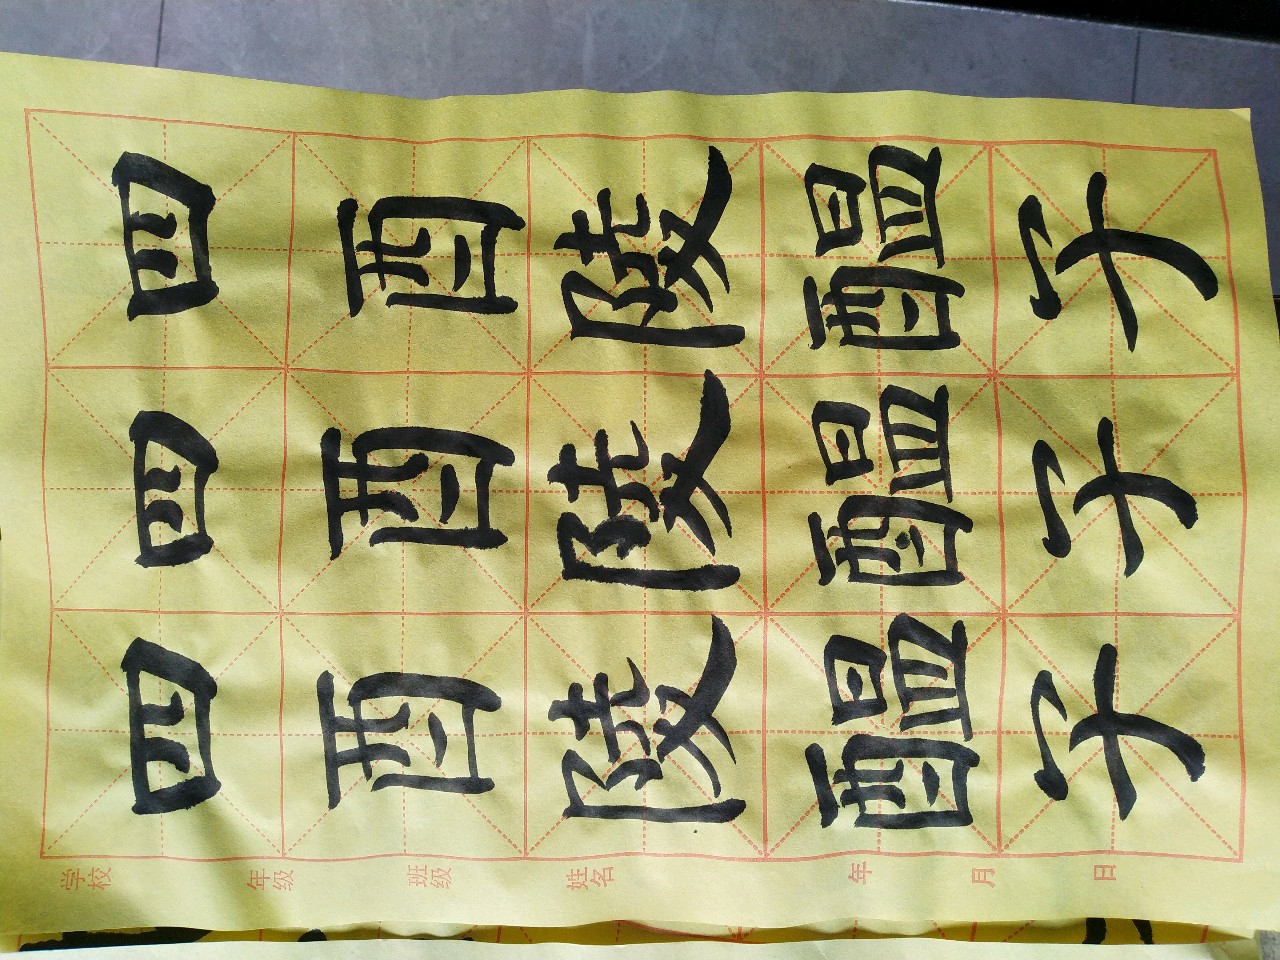 四酉陵醖子
四酉陵醖子
四酉陵醖子
学校 年级 班级 姓名 年 月 日